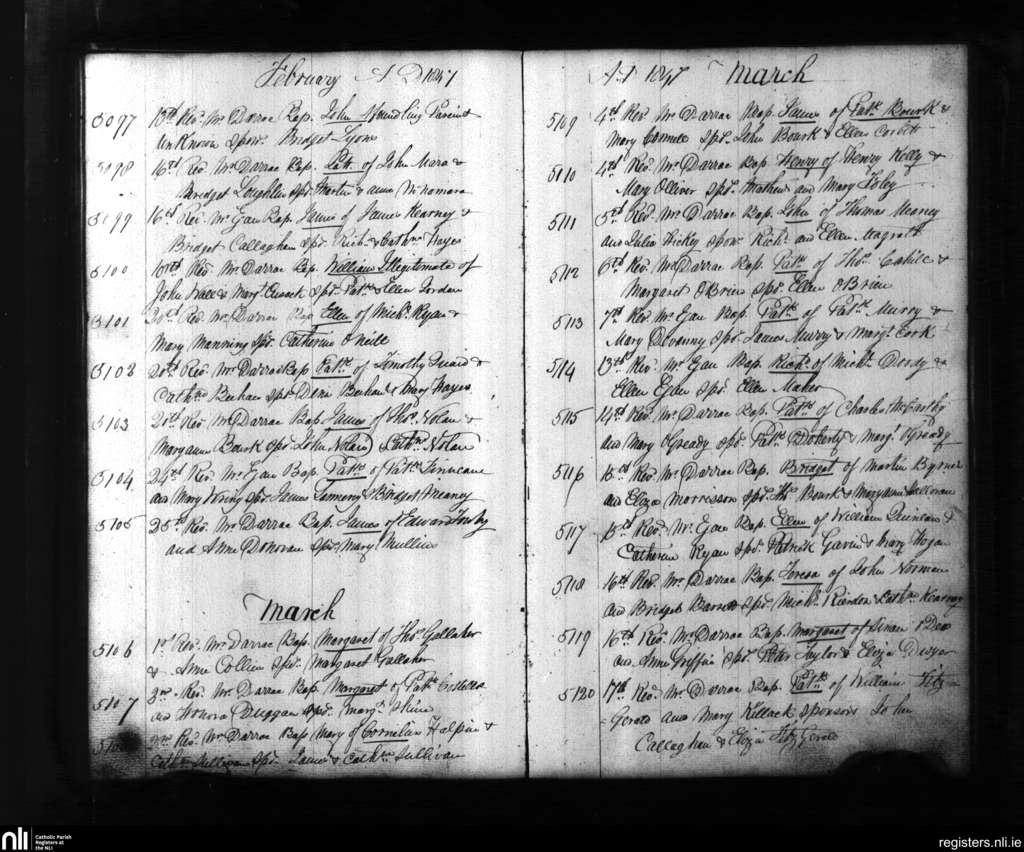 February A D 1847
5097 13th Revd. Mr Darrae Bap. John Foundling Parents
UnKnown Spons. Bridget Lyons
5098 16th Rev Mr Darrae Bap. Patt. of John Mara &
Bridget Loughlin Spr. Martin & Anne McNamara
5099 16th Rev. Mr. Gau Bap. James of James Kearney &
Bridget Callaghan Spr. Richd. & Cathne Hayes
5100 Revd. Mr. Darrae Bap. William Illigitemate of
John & Margt. Cusack Spr. Patk. & Ellen Jordan
5101 20th Revd. Mr. Darrae Bap. Ellen of Michl. Ryan &
Mary Manning Spr. Catherine O Neill
5102 20th Revd. Mr Darrae Bap. Patk. of Timothy &
Cathne Spr. & Mary Hayes
5103 Revd. Mr Darrae Bap. James of Thos. Nolan &
Maryann Bourk Spr John Noland Cathne. Nolan
5104 24th Rev. Mr Gau Bap. Patk. of Patk. Finucane
and Mary Spr. James & Bridget Meaney
5105 25th Revd. Mr Darrae Bap. James of Edward
and Anne Donovan Spr. Mary Mullin
March
5106 1st Revd. Mr. Darrae Bap. Margaret of Thos. Gallaher
& Anne Collin Spr. Margaret Gallaher
5107 2nd Rev. Mr Darrae Bap. Margaret of Patk.
and Honora Duggan Spr. Margt. Shine
2nd Revd. Mr Darrae Bap. Mary of Cornelius Halpin &
Cathn Sullivan Spr. James & Cathne Sullivan
A.D 1847 March
5109 4th Rev Mr Darrae Bap. James of Patk. Bourk &
Mary Spr. John Bourk & Ellen Corbett
5110 4th Rev. Mr Darrae Bap. Henry of Henry Kelly &
Mary Olliver Spr. Mathew and Mary Foley
5111 5th Revd. Mr Darrae Bap. John of Thomas Meaney
and Julia Hickey Spons. Richd. and Ellen Magrath
5112 6th Rev. Mr Darrae Bap. Patk. of Thos. Cahill &
Margaret O Brien Spr. Ellen O Brien
5113 7th Rev Mr Gau Bap. Patk. of Patk. Murry &
Mary Devanny Spr. James Murry & Margt. Cork
5114 13th Rev. Mr Gau Bap Richd. of Michl. &
Ellen Egan Spr. Ellen Maher
5115 14th Rev. Mr Darrae Bap. Patk. of Charles McCarthy
and Mary OGready Spr. Patk. ODoherty & Margt. OGready
5116 15th Rev. Mr Darrae Bap. Bridget of Martin Byrnes
and Eliza Morrisson Spr. Thos Bourk & Maryann Halloran
5117 15th Rev. Mr. Gau Bap. Ellen of William Quinlan &
Catherine Ryan Spr. Patrick Gavin & Mary Hogan
5118 16th Revd. Mr Darrae Bap. Teresa of John Norman
and Bridget Barrett Spr. Michl. Riordan & Cathne Kearney
5119 16th Rev. Mr. Darrae Bap. Margaret of
and Anne Griffin Spr. Peter Taylor & Eliza Dwyer
5120 17th Rev. Mr Darrae Bap. Patk. of William Fitz
-Gerald and Mary Killack Sponsors John
Callaghan & Eliza FitzGerald
nli
Catholic Parish
Registers at
the NLI
registers.nli.ie